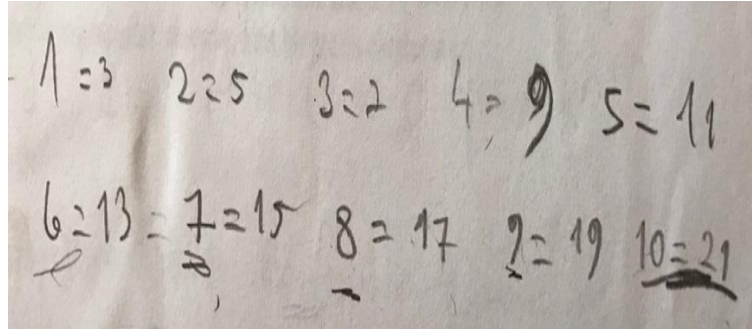 1=3 2=5 3=7 4=9 5=11
6=13=7=15 8=17 9=19 10=21